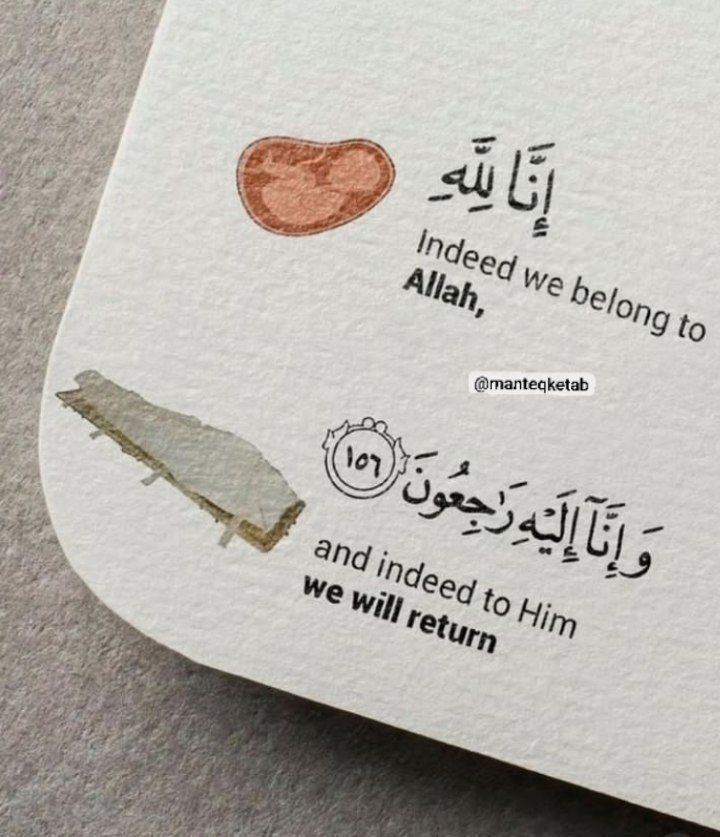 إِنَّا لِلَّهِ
Indeed we belong to
Allah,
@manteqketab
وَإِنَّآ إِلَيْهِ رَٰجِعُونَ ١٥٦
and indeed to Him
we will return